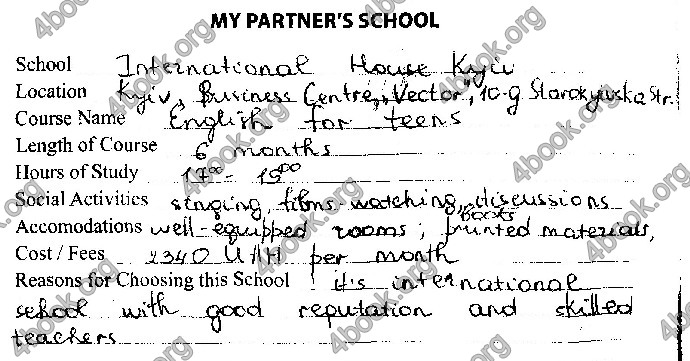 MY PARTNER'S SCHOOL
School International House Kyiv
Location Kyiv, Business Centre „Vector", 10-g Starokyivska Str.
Course Name English for teens
Length of Course 6 months
Hours of Study 17⁰⁰ - 19⁰⁰
Social Activities singing, films-watching, discussions
books
Accomodations well-equipped rooms; printed materials,
Cost / Fees 2340 UAH per month
Reasons for Choosing this School it's international
school with good reputation and skilled
teachers
4book.org